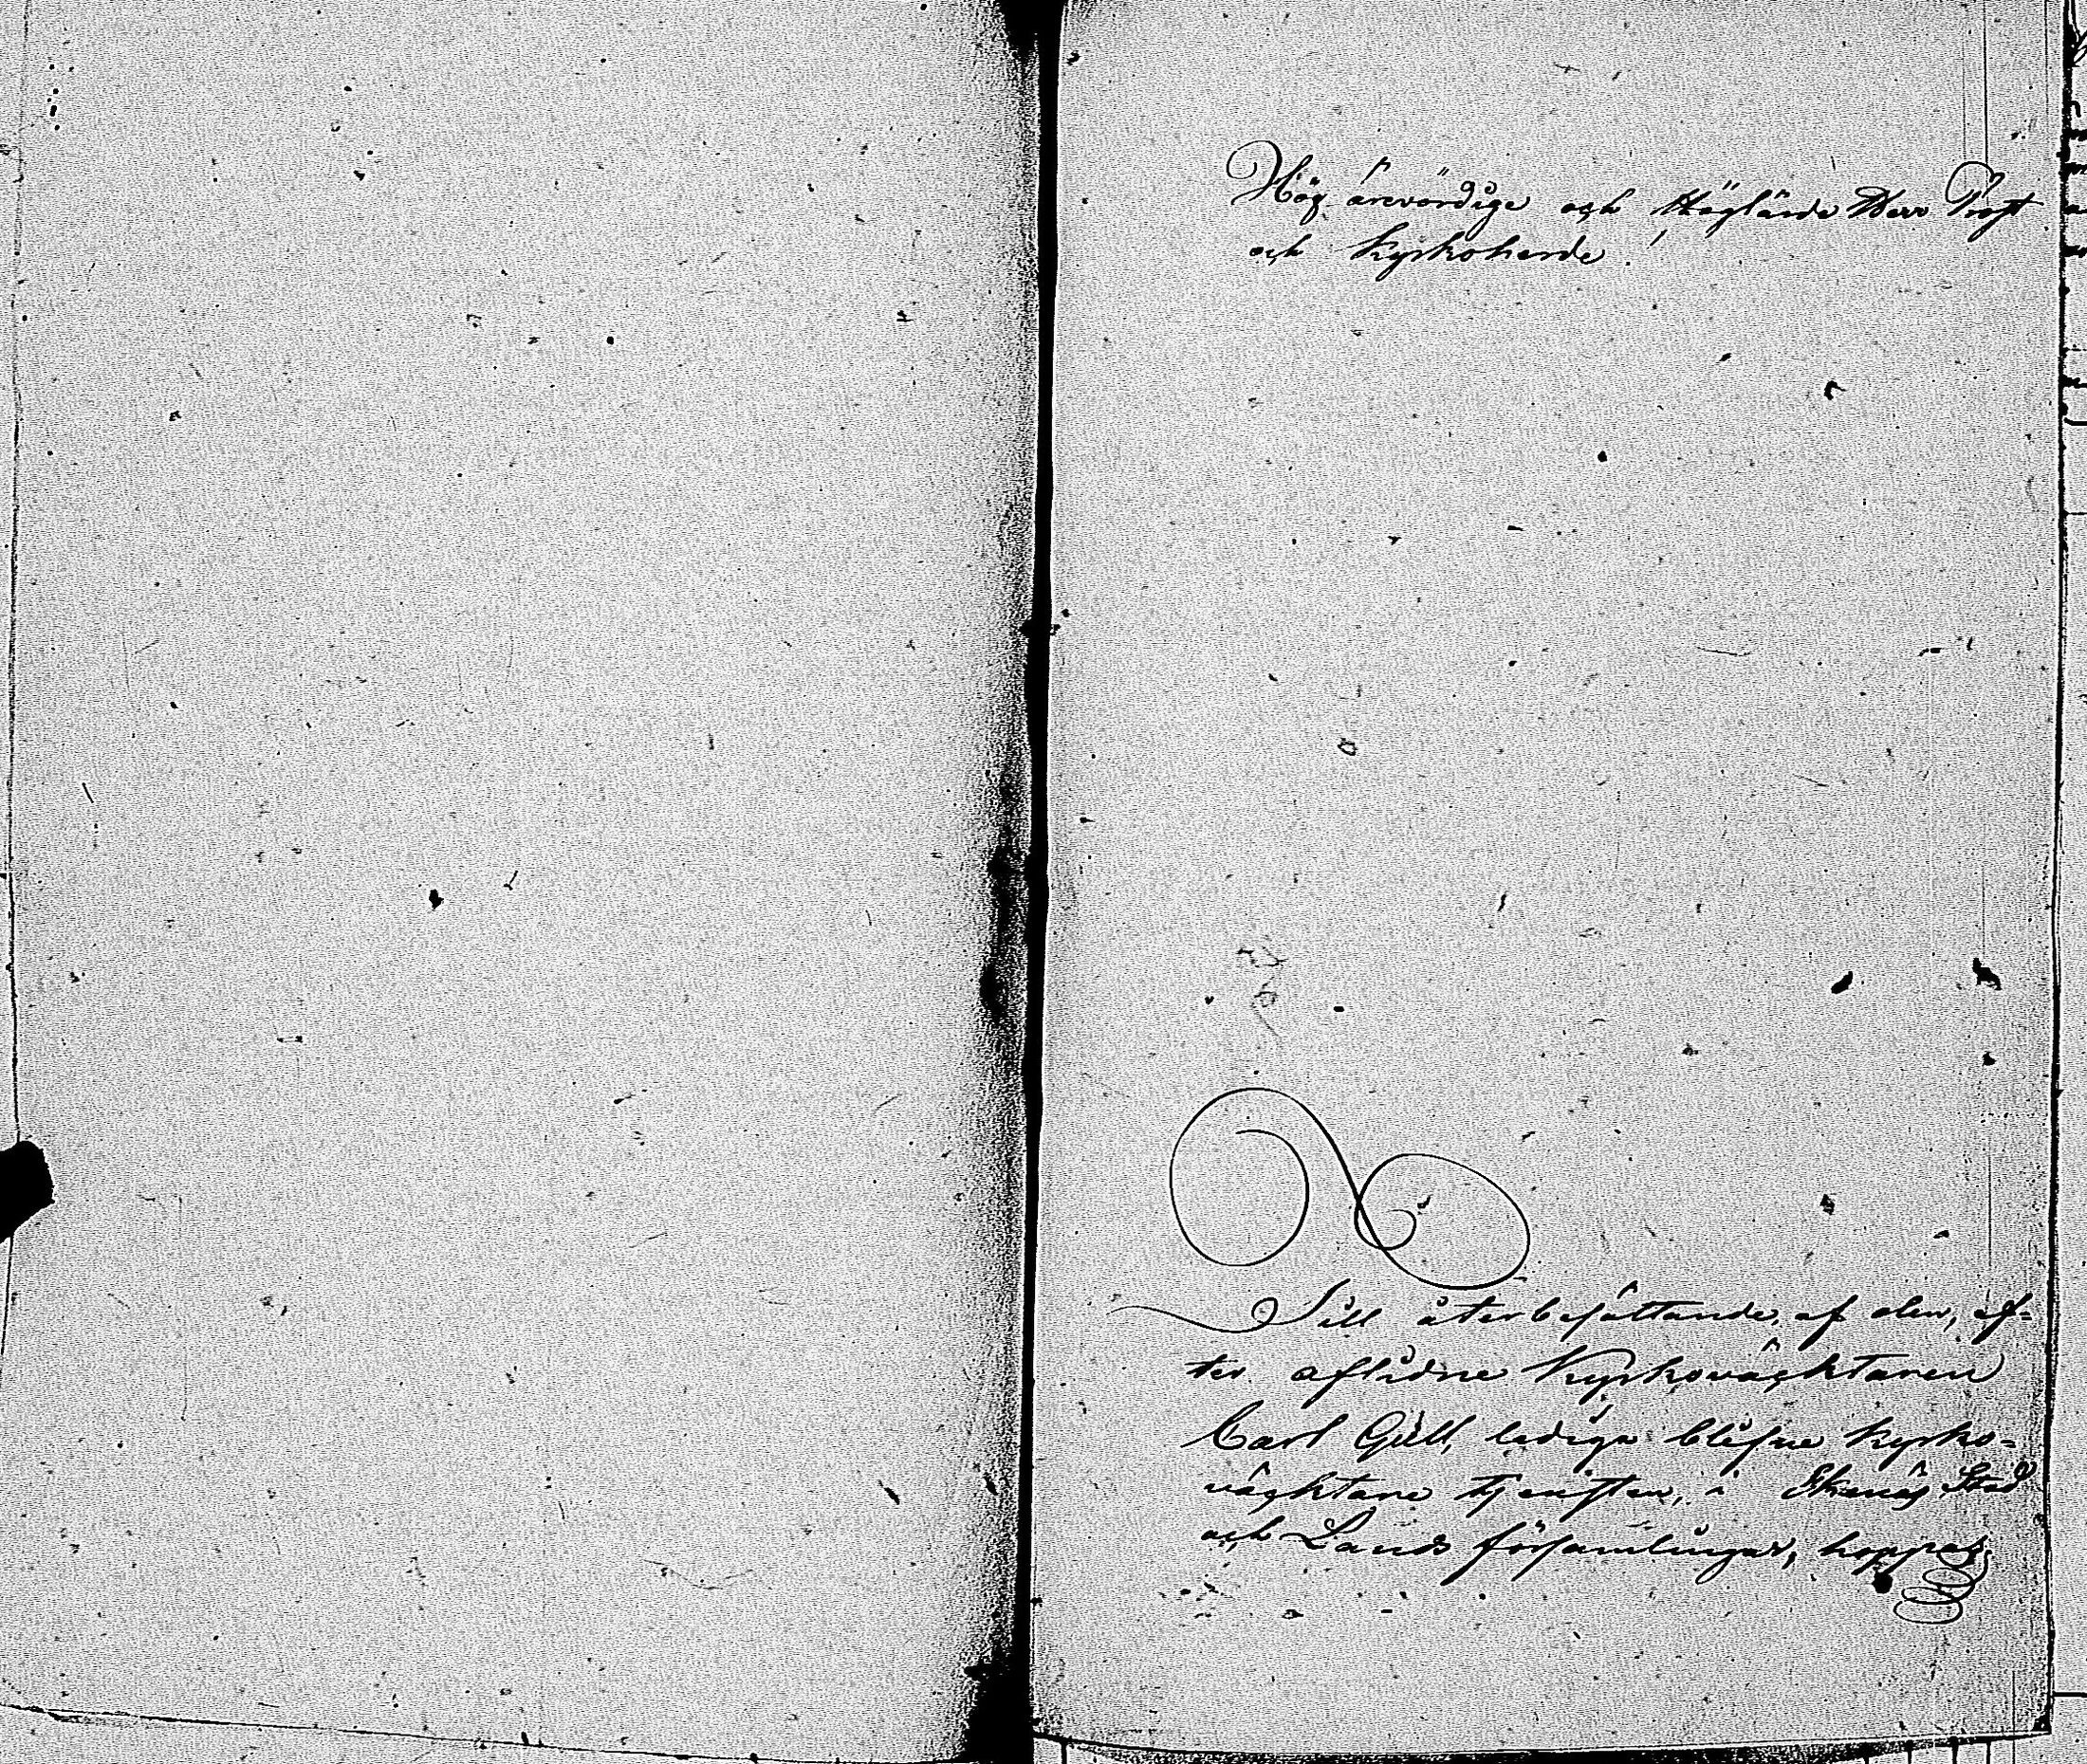 Hög ärevördige och Höglärde Herr Prost
och Kyrkoherde!
Till återbesättande, af den, ef-
ter aflidne Kyrkoväcktaren
Carl Gull, lediga blifne kyrko-
väcktare tjensten, i Ekenäs Stad
och Lands församlingar, hoppas